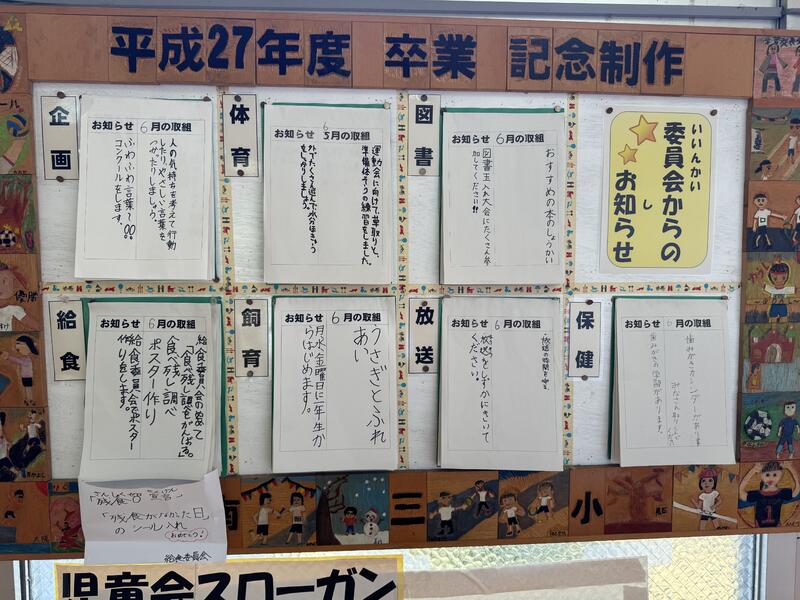 平成27年度 卒業 記念制作
企画
お知らせ 6月の取組
人の気持ちを考えて行動
したり、やさしい言葉を
つかったりしましょう。
ふわふわ言葉で
コンクールをします。
体育
お知らせ 6月の取組
運動会に向けて、草取りと、
準備体そうの練習をしました。
外でたくさん遊んで、水分ほきゅう
をしっかりしましょう。
図書
お知らせ 6月の取組
おすすめの本のしょうかい
図書玉入れ大会にたくさん参
加してください!!
いいんかい
委員会からの
お知らせ
し
給食
お知らせ 6月の取組
給食委員会のめあて
「食べ残し調べをがんばる。」
食べ残し調べ
ポスター作り
給食委員会でポスター
作りをします。
飼育
お知らせ 6月の取組
うさぎとふれ
あい
月水金曜日に一年生か
らはじめます。
放送
お知らせ 6月の取組
放送の時間を守る
放送をしずかにきいて
ください。
保健
お知らせ 6月の取組
歯みがきカレンダーがあります
歯みがきの学習があります。
ざんしょく
せんげん
「残食0宣言」
「残食がなかった日」
のシール入れ
おめでとう!
給食委員会
三小
児童会スローガン